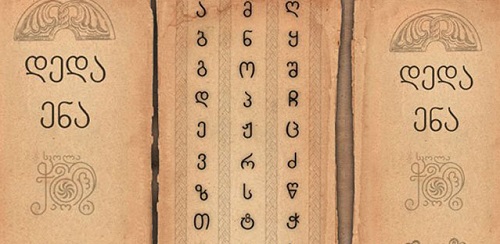 დედა
ენა
ა მ ღ
ბ ნ ყ
გ ო შ
დ პ ჩ
ე ჟ ც
ვ რ ძ
ზ ს წ
თ ტ ჭ
დედა
ენა